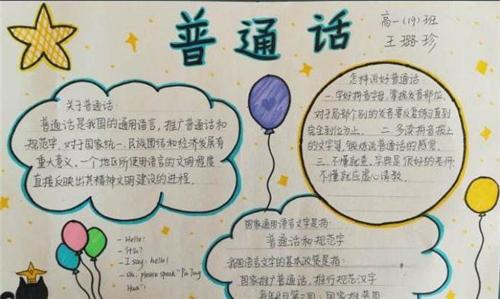 普通话
高一(19)班
王璐珍
关于普通话:
普通话是我国的通用语言,推广普通话和
规范字,对于国家统一、民族团结和经济发展有
重大意义。一个地区所使用语言的文明程度
直接反映出其精神文明建设的进程。
怎样说好普通话:
一.学好拼音字母,掌握发音部位。
对于局部个别的发音要反复修正直到
完全到位为止。 二.多读拼音报上
的文字等,锻炼说普通话的感觉。
三.不懂就查,字典是很好的老师
不懂就应虚心请教。
- Hello!
- It's?
- I say: hello!
- oh, please speak "Pu Tong
Hua"!
国家通用语言文字是指:
普通话和规范字
我国语言文字的基本政策是指:
国家推广普通话,推行规范汉字